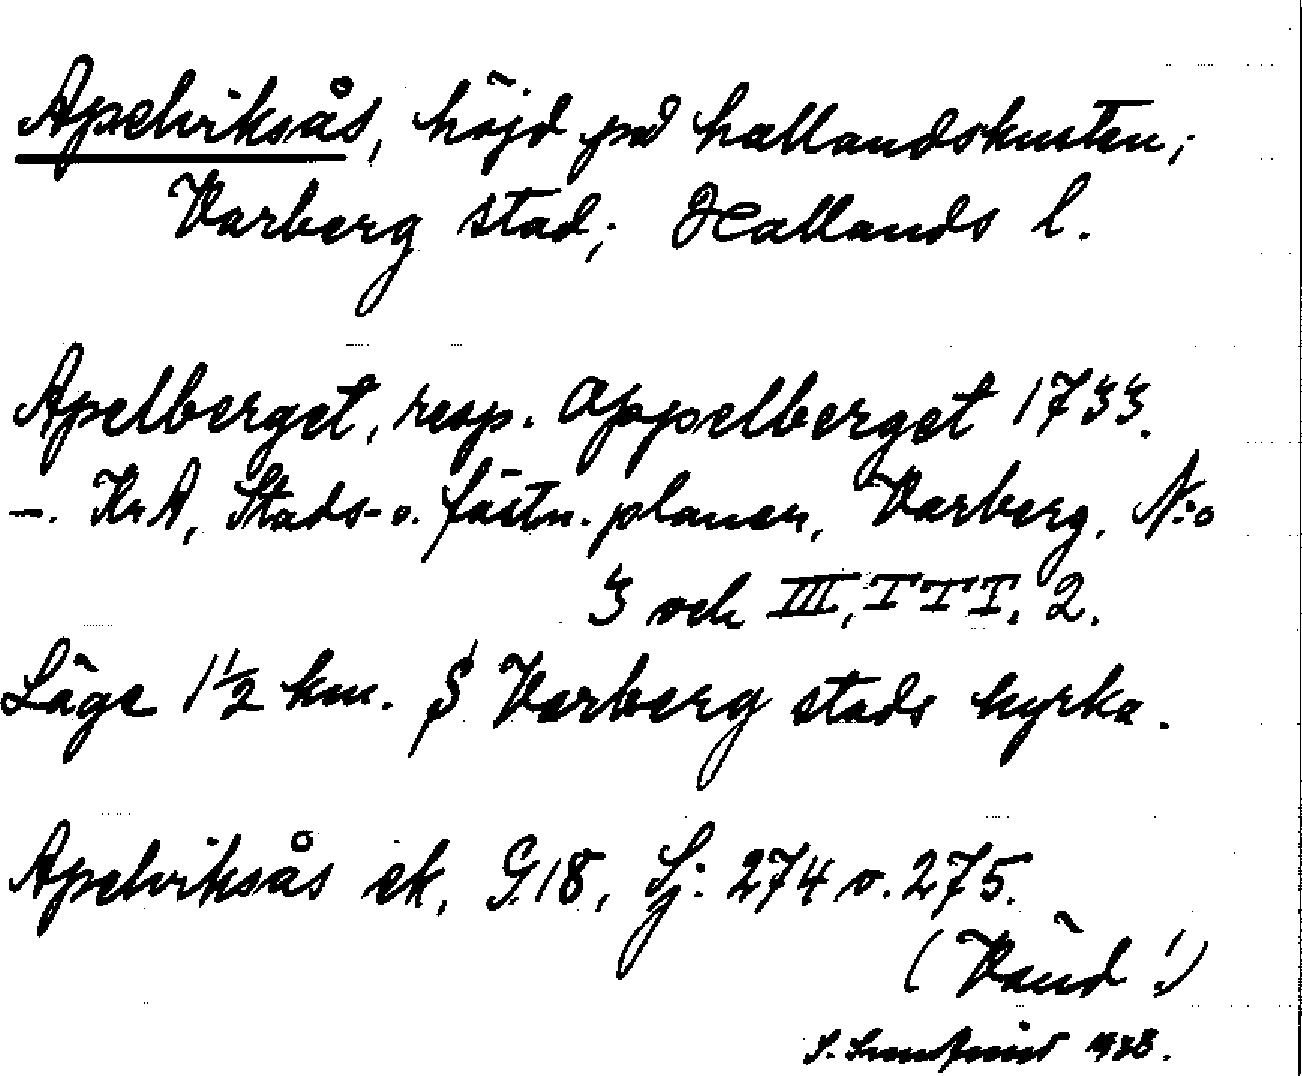 Apelviksås, höjd på hallandskusten;
Varberg stad; Hallands l.
Apelberget, resp. Appelberget 1733.
–. KrA, Stads- o. fästn. planer, Varberg. N:o
3 och III, I I I. 2.
Läge 1½ km. S Varberg stads kyrka.
Apelviksås ek, G.18, Lj: 274 o. 275.
(Vänd!)